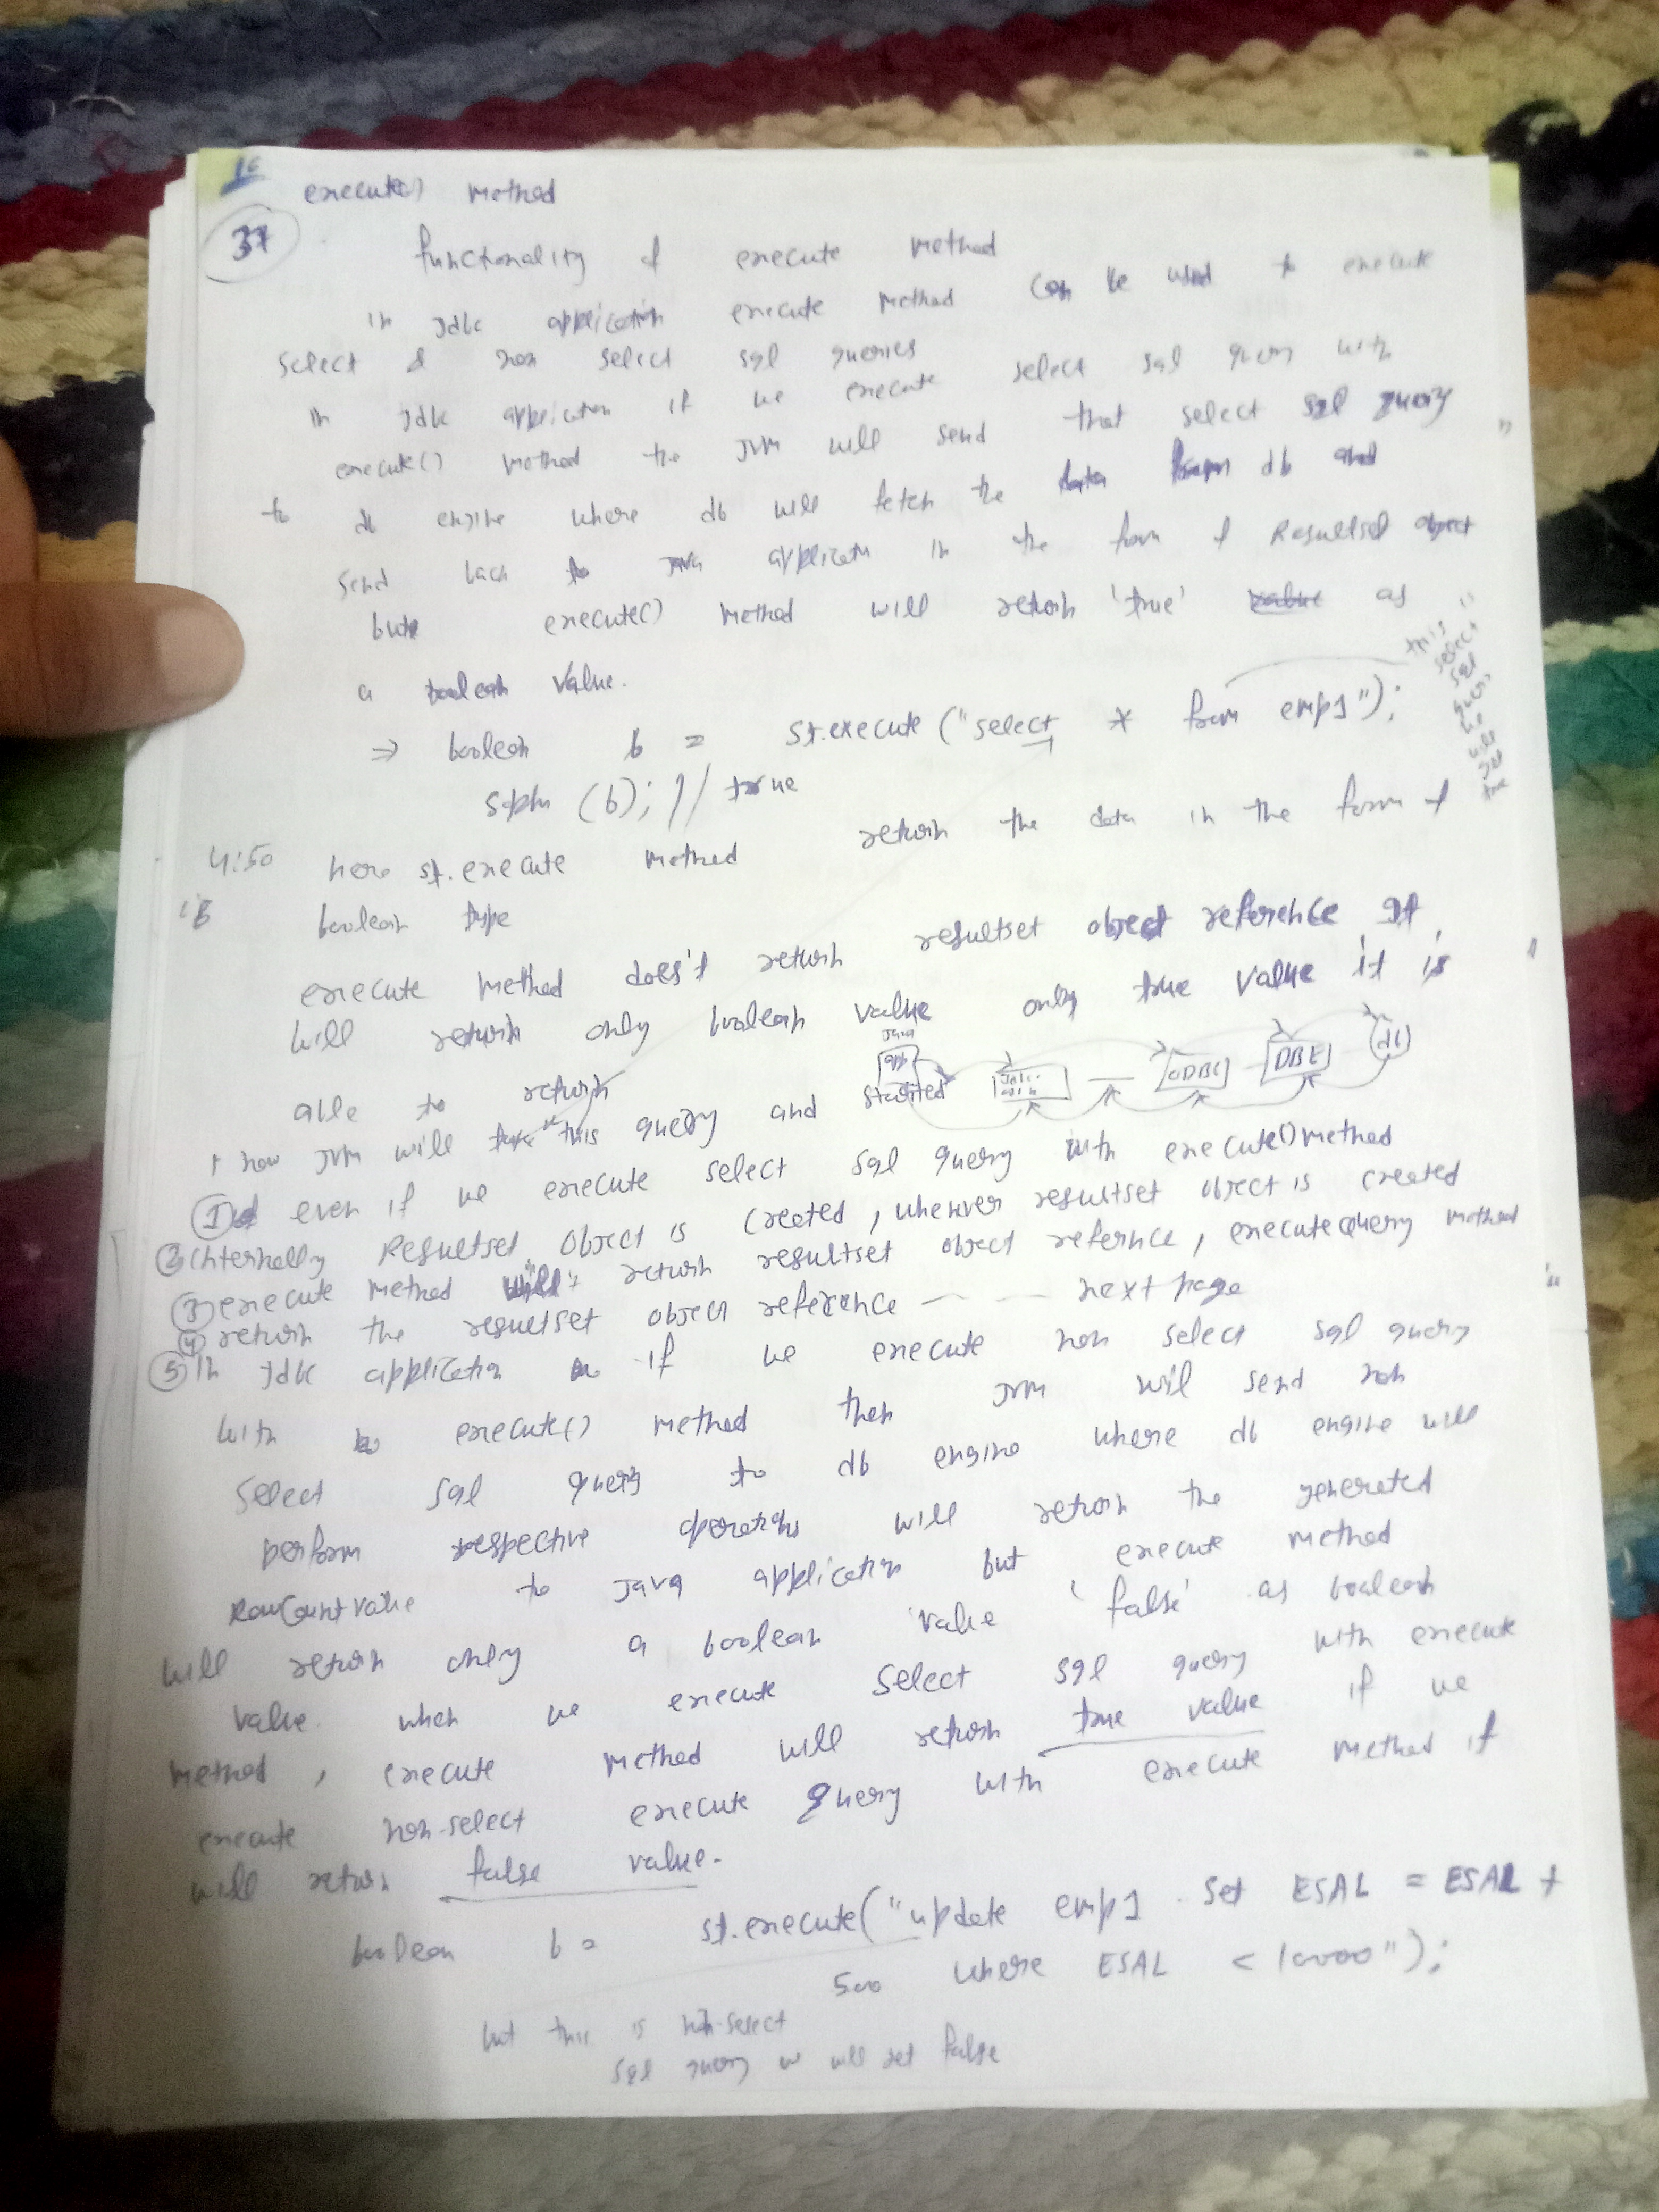 16
execute() method
37
functionality of execute method
in Jdbc application execute method can be used to execute
select & non select sql queries
in Jdbc application if we execute select sql query with
execute() method the JVM will send that select sql query
to db engine where db will fetch the data from db and
send back to Java applicatn in the form of Resultset object
but execute() method will return 'true' value as
a boolean value.
this is select sql query we will get true
⇒ boolean b = st.execute ("select * from emp1");
sopln (b); // true
4:50 here st.execute method return the data in the form of
boolean type
execute method does't return resultset object reference it
will return only boolean value only true value it is
able to return
Java app
ODBC
DBE
db
how JVM will take this query and started
① even if we execute select sql query with execute() method
② internally Resultset object is created, whenver resultset object is created
③ execute method return resultset object refernce, executeQuery method
④ return the resultset object reference — — — next page
⑤ In Jdbc application if we execute non select sql query
with execute() method then JVM will send non
select sql query to db engine where db engine will
perform respective operations will return the generated
RowCount value to Java application but execute method
will return only a boolean value 'false' as boolean
value. when we execute Select sql query with execute
method, execute method will return true value if we
execute non-select execute query with execute method it
will return false value.
boolean b = st.execute("update emp1 set ESAL = ESAL +
500 where ESAL < 10000");
but this is non-select
sql query w will get false